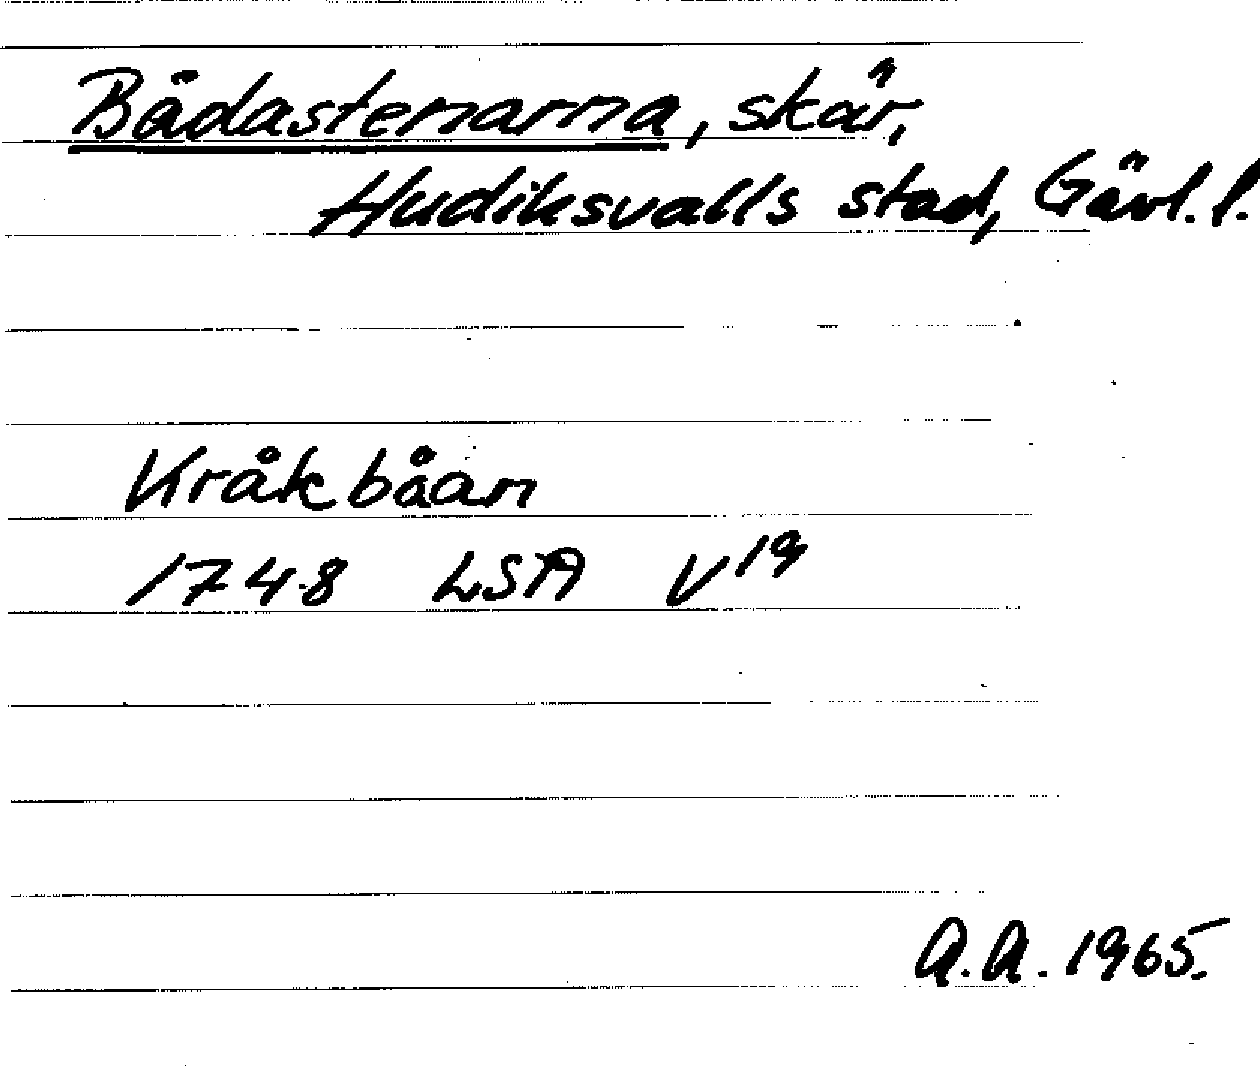 Bådastenarna, skär,
Hudiksvalls stad, Gävl. l.
Kråkbåan
1748 LSA V 19
A.A. 1965.